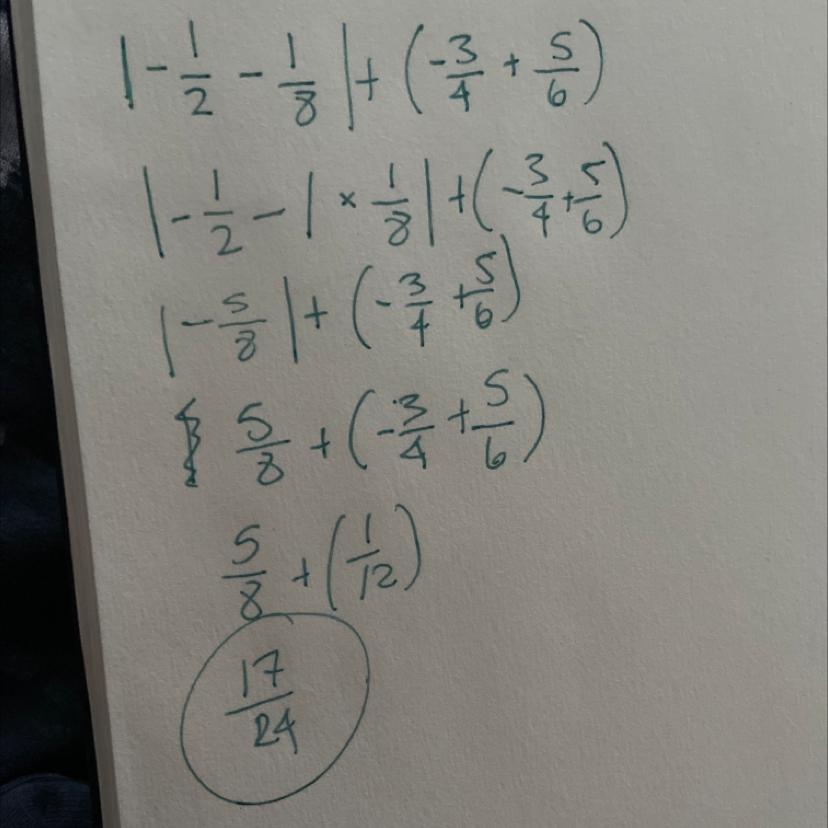 |-1/2 - 1/8| + (-3/4 + 5/6)
|-1/2 - 1 × 1/8| + (-3/4 + 5/6)
|-5/8| + (-3/4 + 5/6)
5/8 + (-3/4 + 5/6)
5/8 + (1/12)
17/24